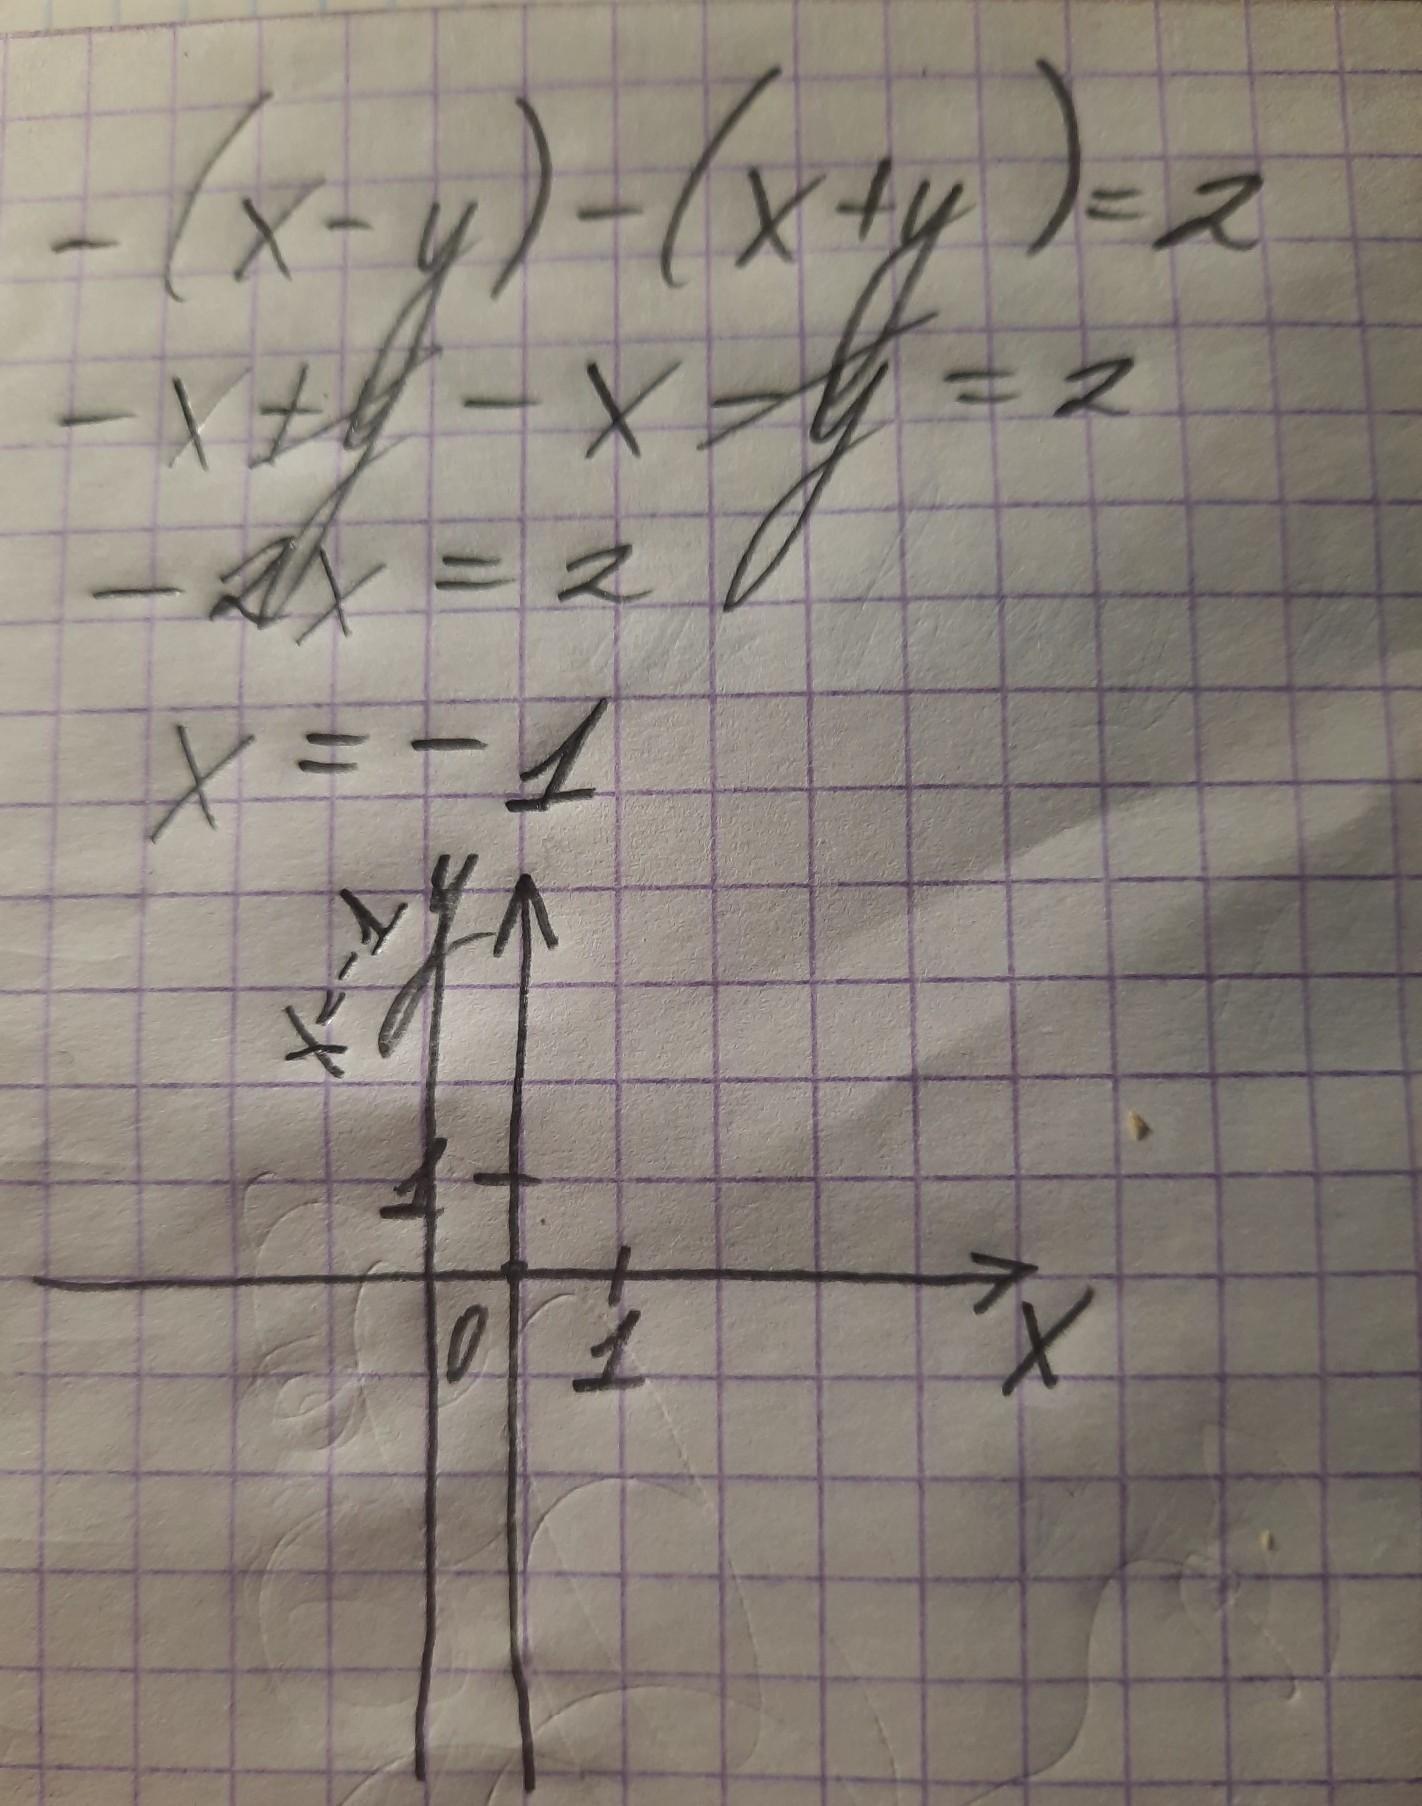 -(x-y)-(x+y)=2
-x+y-x-y=2
-2x=2
x=-1
x=-1
y
1
0
1
x